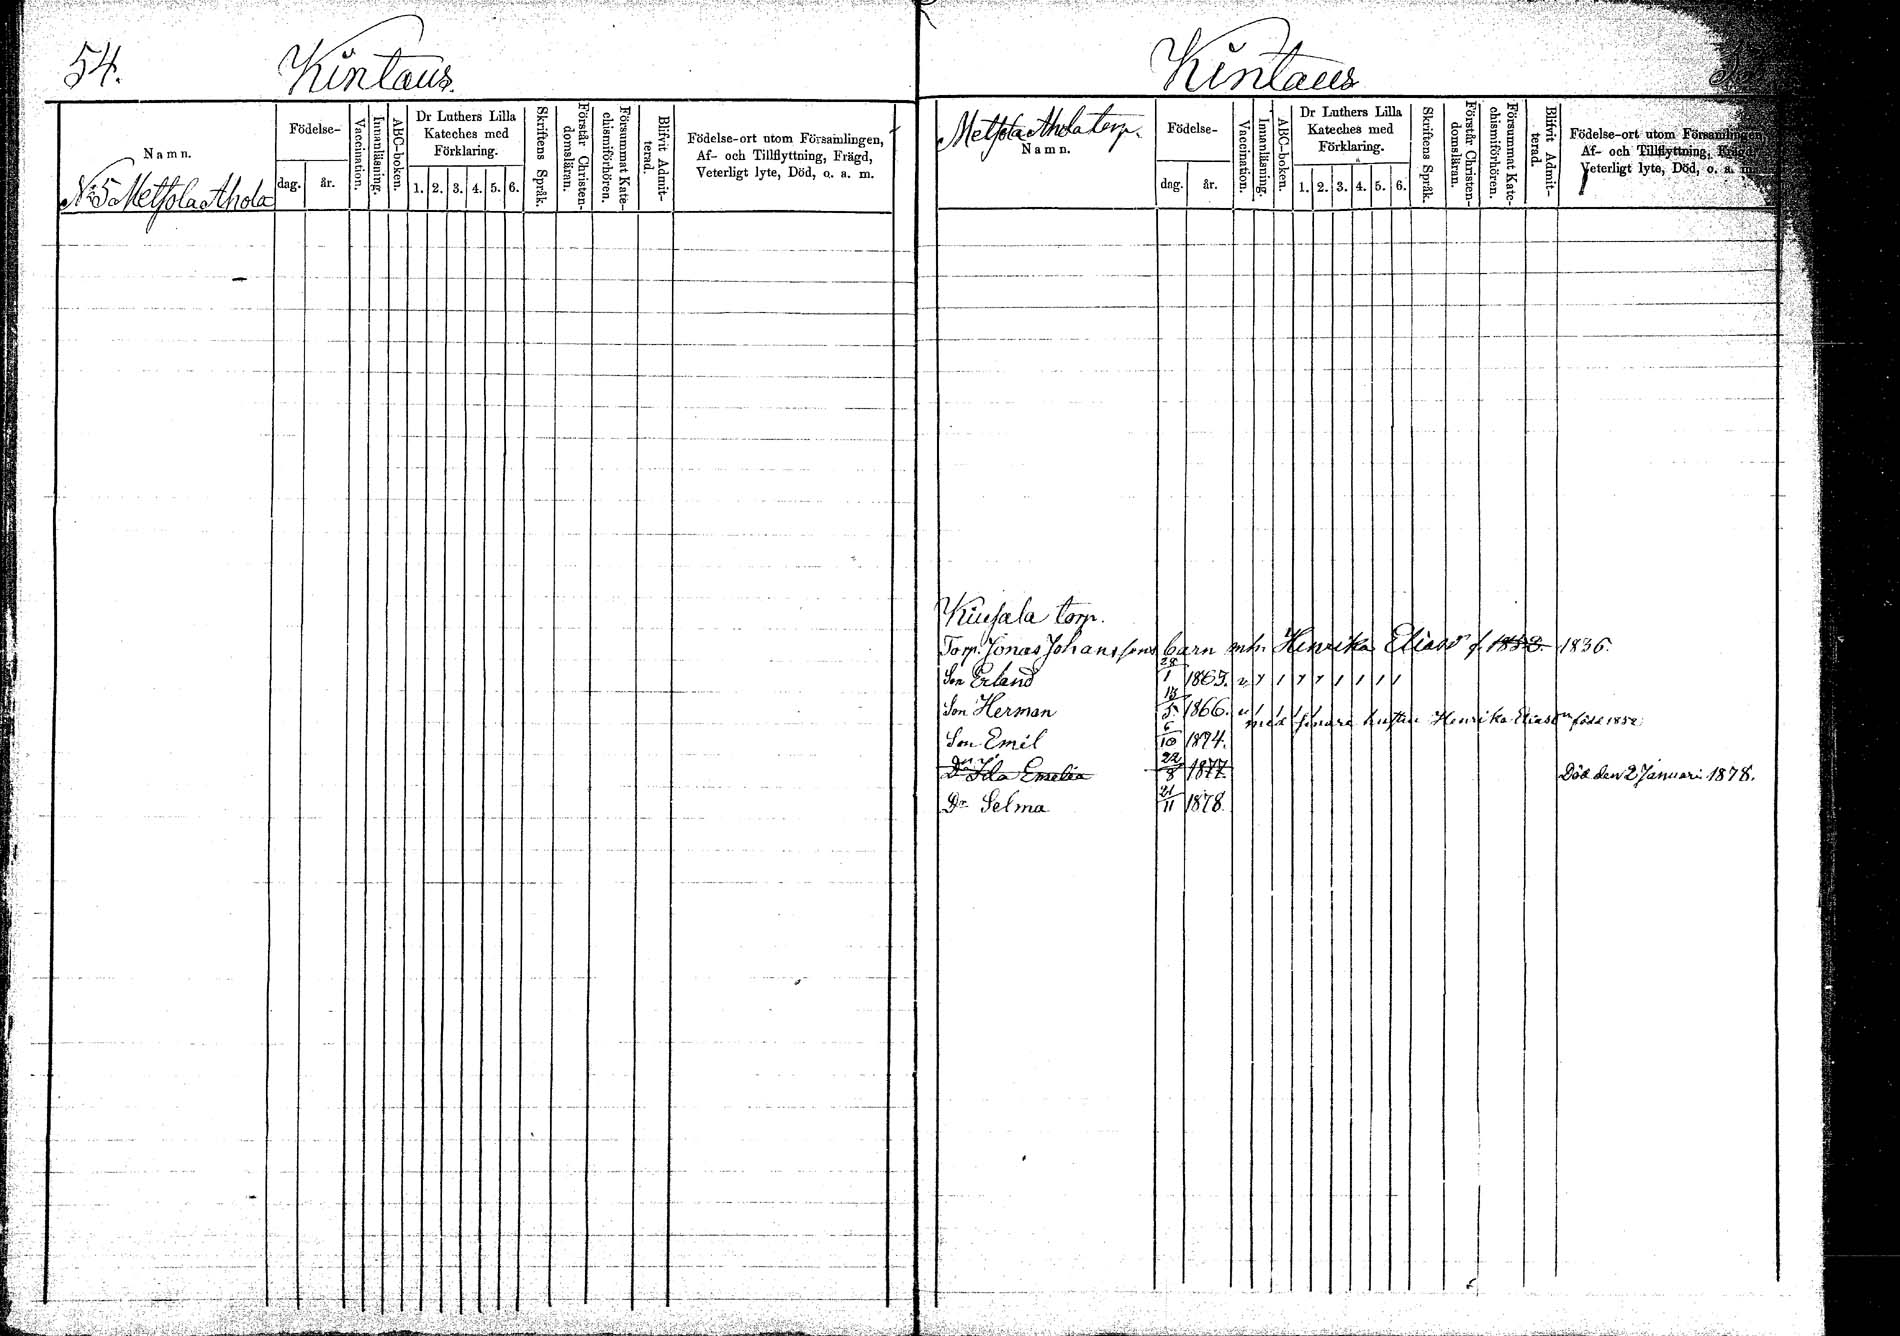 54.
Kintaus.
Namn.
Födelse-
dag.
år.
Vaccination.
Innanläsning.
ABC-boken.
Dr Luthers Lilla
Kateches med
Förklaring.
1. 2. 3. 4. 5. 6.
Skriftens Språk.
Förstår Christen-
domsläran.
Försummat Kate-
chismiförhören.
Blifvit Admit-
terad.
Födelse-ort utom Församlingen,
Af- och Tillflyttning, Frägd,
Veterligt lyte, Död, o. a. m.
No 5 Metsola Ahola
Kintaus
Metsola Ahola torp.
Namn.
Födelse-
dag.
år.
Vaccination.
Innanläsning.
ABC-boken.
Dr Luthers Lilla
Kateches med
Förklaring.
1. 2. 3. 4. 5. 6.
Skriftens Språk.
Förstår Christen-
domsläran.
Försummat Kate-
chismiförhören.
Blifvit Admit-
terad.
Födelse-ort utom Församlingen,
Af- och Tillflyttning, Frägd,
Veterligt lyte, Död, o. a. m.
torp.
Torp. Jonas Johanssons barn Henrika Eliasdr f. 1836.
Son Erland 28/1 1865. v
Son Herman 13/5 1866. v
med hustru Henrika Eliasdr född 1832
Son Emil 6/10 1874.
Dr Ida Emelia 22/8 1877 Död den 2 Januari 1878.
Dr Selma 21/11 1878.